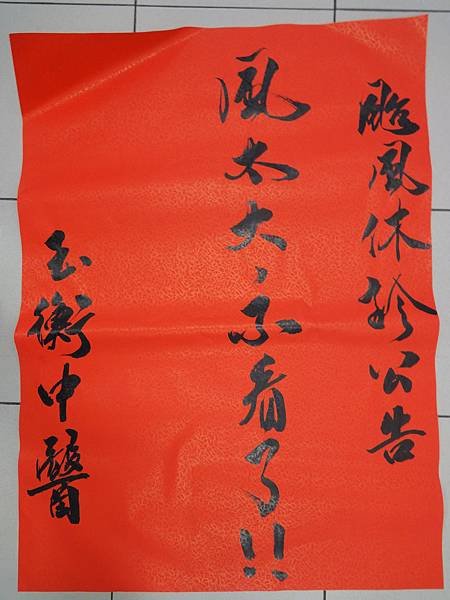 颱風休診公告
風太大、不看了!!
玉衡中醫